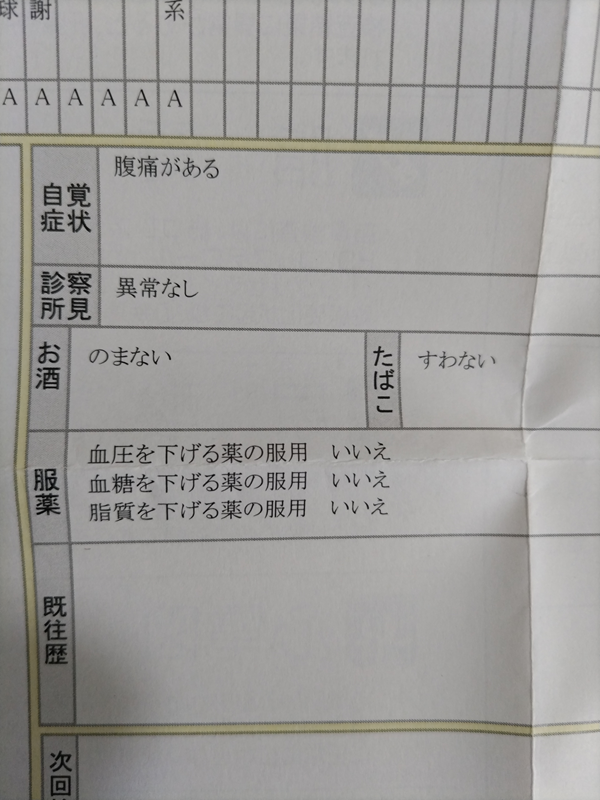 球 謝 系
A A A A A A
自覚症状 腹痛がある
診察所見 異常なし
お酒 のまない たばこ すわない
服薬
血圧を下げる薬の服用 いいえ
血糖を下げる薬の服用 いいえ
脂質を下げる薬の服用 いいえ
既往歴
次回